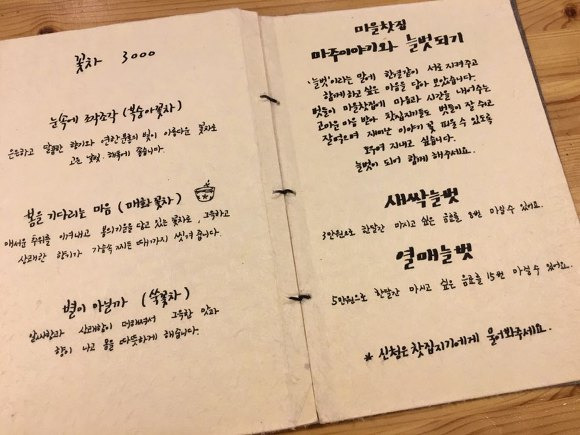 꽃차 3000
눈속에 조각조각 (복숭아꽃차)
은은하고 달콤한 향기와 연한 분홍의 빛이 아름다운 꽃차로
해독에 좋습니다.
봄을 기다리는 마음 (매화꽃차)
매서운 추위를 이겨내고 봄의 기운을 담고 있는 꽃차로, 그윽하고
상쾌한 향기가 가슴속 찌든 때까지 씻겨 줍니다.
별이 아닐까 (쑥꽃차)
쌉싸름한과 상쾌함이 더해져서 그윽한 맛과
향이 나고 몸을 따뜻하게 해줍니다.
마을찻집
마주이야기와 늘벗되기
'늘벗'이라는 말에 한결같이 서로 지켜주고
함께하고 싶은 마음을 담아 보았습니다.
벗들이 마을찻집에 마음과 시간을 내어주는
고마운 마음 받아 찻집지기들도 벗들이 잘 쉬고
잘 먹으며 재미난 이야기 꽃 피울 수 있도록
도우며 지내고 싶습니다.
늘벗이 되어 함께 해주세요.
새싹늘벗
3만원으로 한달간 마시고 싶은 음료를 8번 마실 수 있어요.
열매늘벗
5만원으로 한달간 마시고 싶은 음료를 15번 마실 수 있어요.
* 신청은 찻집지기에게 물어봐주세요.